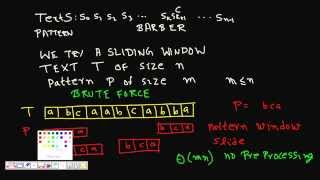 Text S: S0 S1 S2 S3 ... Sk Sk+1 ... Sn-1
C
PATTERN BARBER
WE TRY A SLIDING WINDOW
TEXT T OF SIZE n
Pattern P of size m m≤n
BRUTE FORCE
T a b c a a b c a b b a P= bca
P b c a b c a Pattern Window
b c a Slide
Θ(mn) no Pre Processing